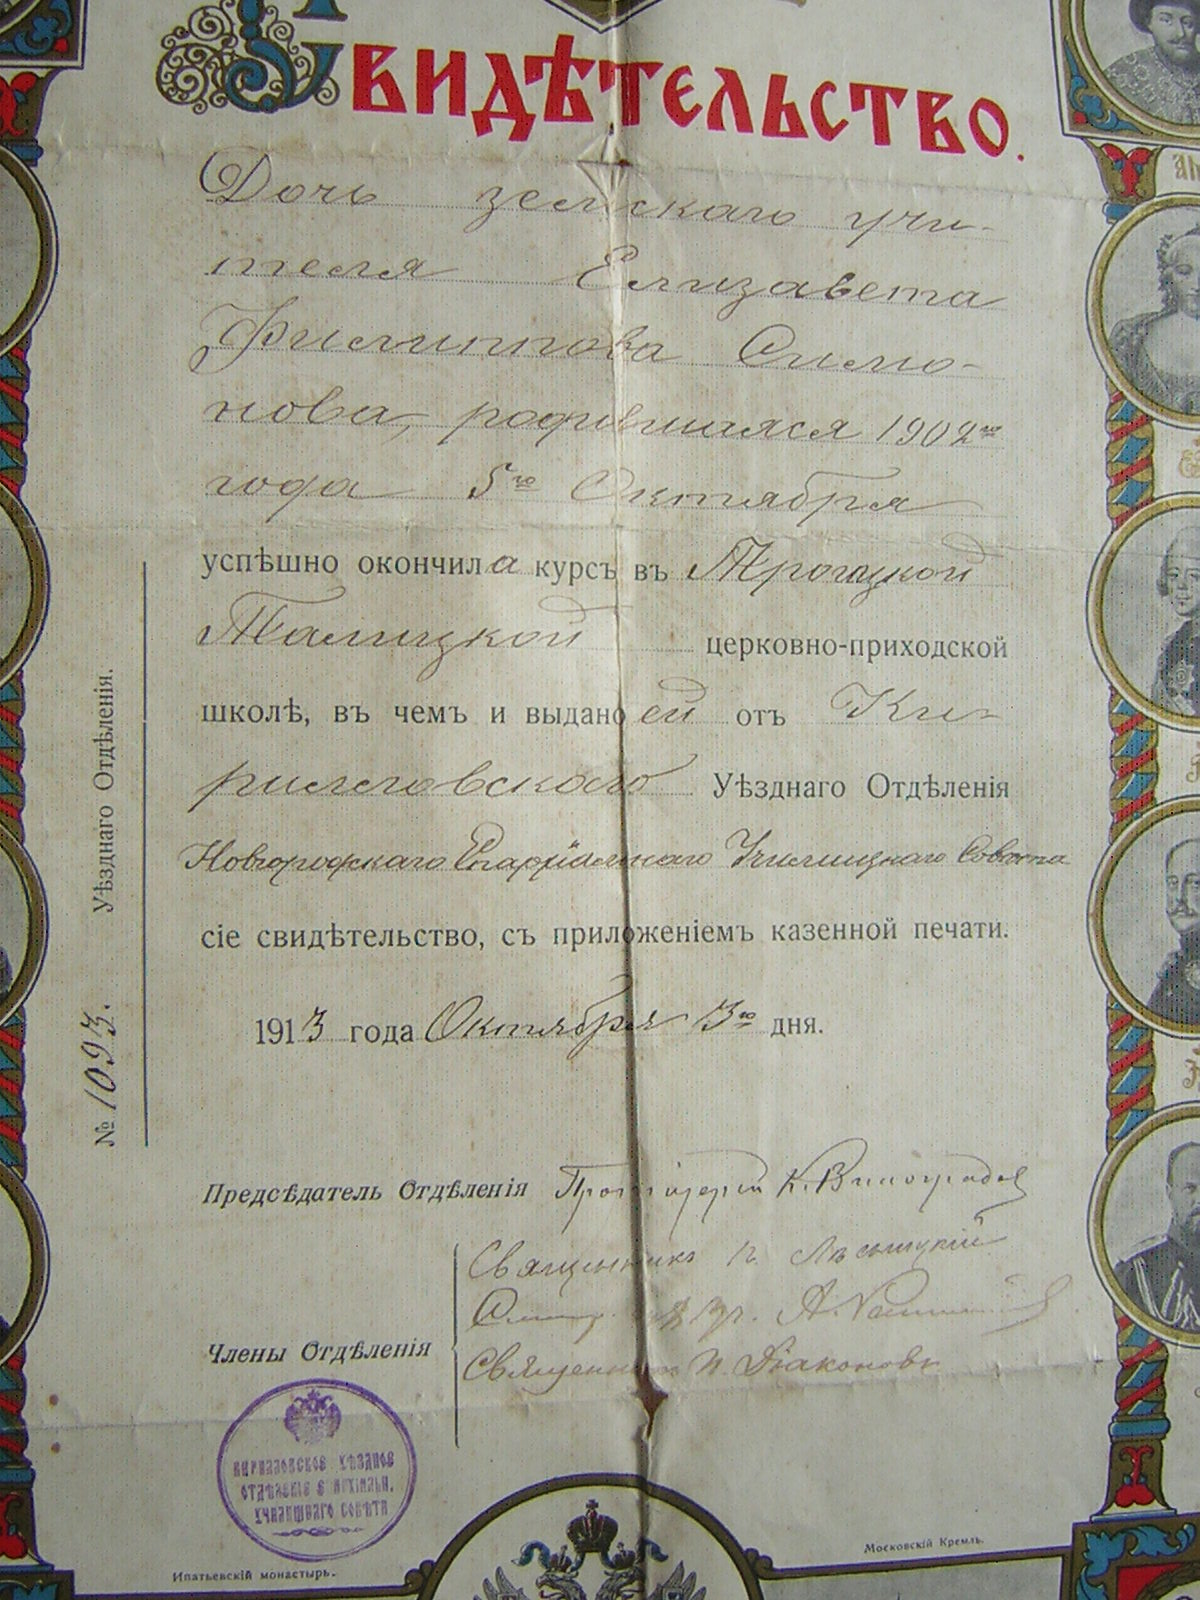 Свидѣтельство.
Дочь земскаго учи-
теля Елизавета
Филиппова Симо-
нова, родившаяся 1902го
года 5го Октября
успѣшно окончила курсъ въ Троицкой
Талицкой церковно-приходской
школѣ, въ чемъ и выдано ей отъ Ки-
рилловскаго Уѣзднаго Отдѣленія
Новгородскаго Епархіальнаго Училищнаго Совѣта
сіе свидѣтельство, съ приложеніемъ казенной печати.
1913 года Октября 3го дня.
№ 1093. Уѣзднаго Отдѣленія.
Предсѣдатель Отдѣленія Протоіерей К. Виноградов
Священникъ
Члены Отдѣленія
Священникъ Н. Діаконовъ
КИРИЛЛОВСКОЕ УѢЗДНОЕ
ОТДѢЛЕНІЕ ЕПАРХІАЛЬН.
УЧИЛИЩНАГО СОВѢТА
Ипатьевскій монастырь.
Московскій Кремль.